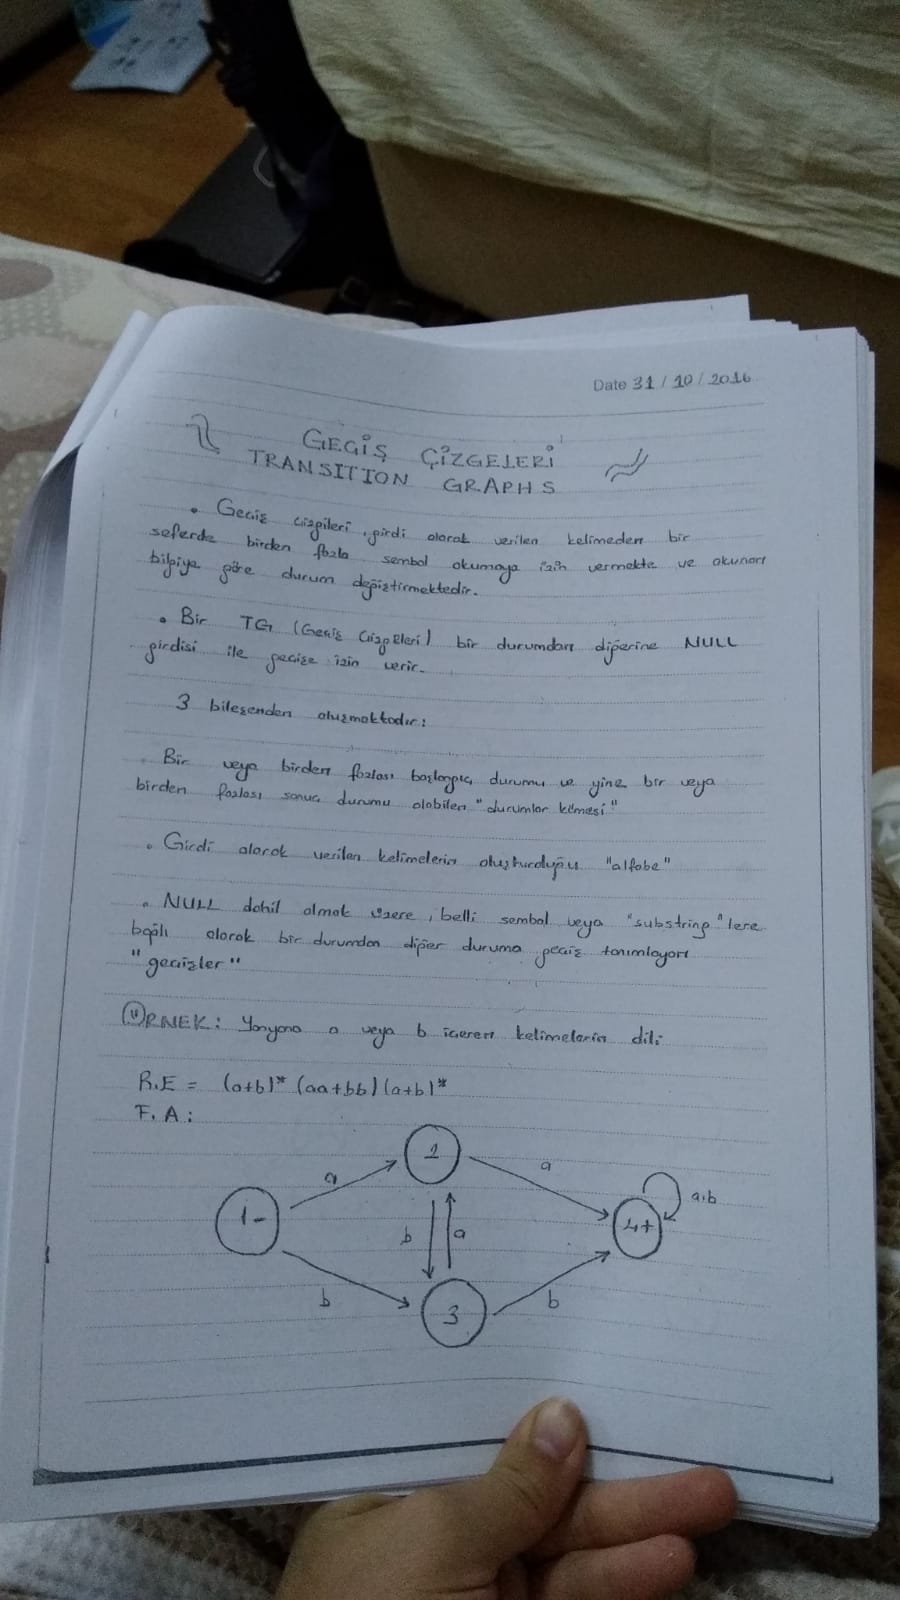 Date 31 / 10 / 2016
GEÇİŞ ÇİZGELERİ
TRANSITION GRAPHS
• Geçiş çizgileri, girdi olarak verilen kelimeden bir
seferde birden fazla sembol okumaya izin vermekte ve okunan
bilgiye göre durum değiştirmektedir.
• Bir TG (Geçiş Çizgeleri) bir durumdan diğerine NULL
girdisi ile geçişe izin verir.
3 bileşenden oluşmaktadır:
Bir veya birden fazlası başlangıç durumu ve yine bir veya
birden fazlası sonuç durumu olabilen "durumlar kümesi"
• Girdi olarak verilen kelimelerin oluşturduğu "alfabe"
• NULL dahil olmak üzere, belli sembol veya "substring"lere
bağlı olarak bir durumdan diğer duruma geçiş tanımlayan
"geçişler"
ÖRNEK: Yanyana a veya b içeren kelimelerin dili
R.E = (a+b)* (aa+bb)(a+b)*
F.A:
2
a a
1- b a 4+ a,b
b 3 b